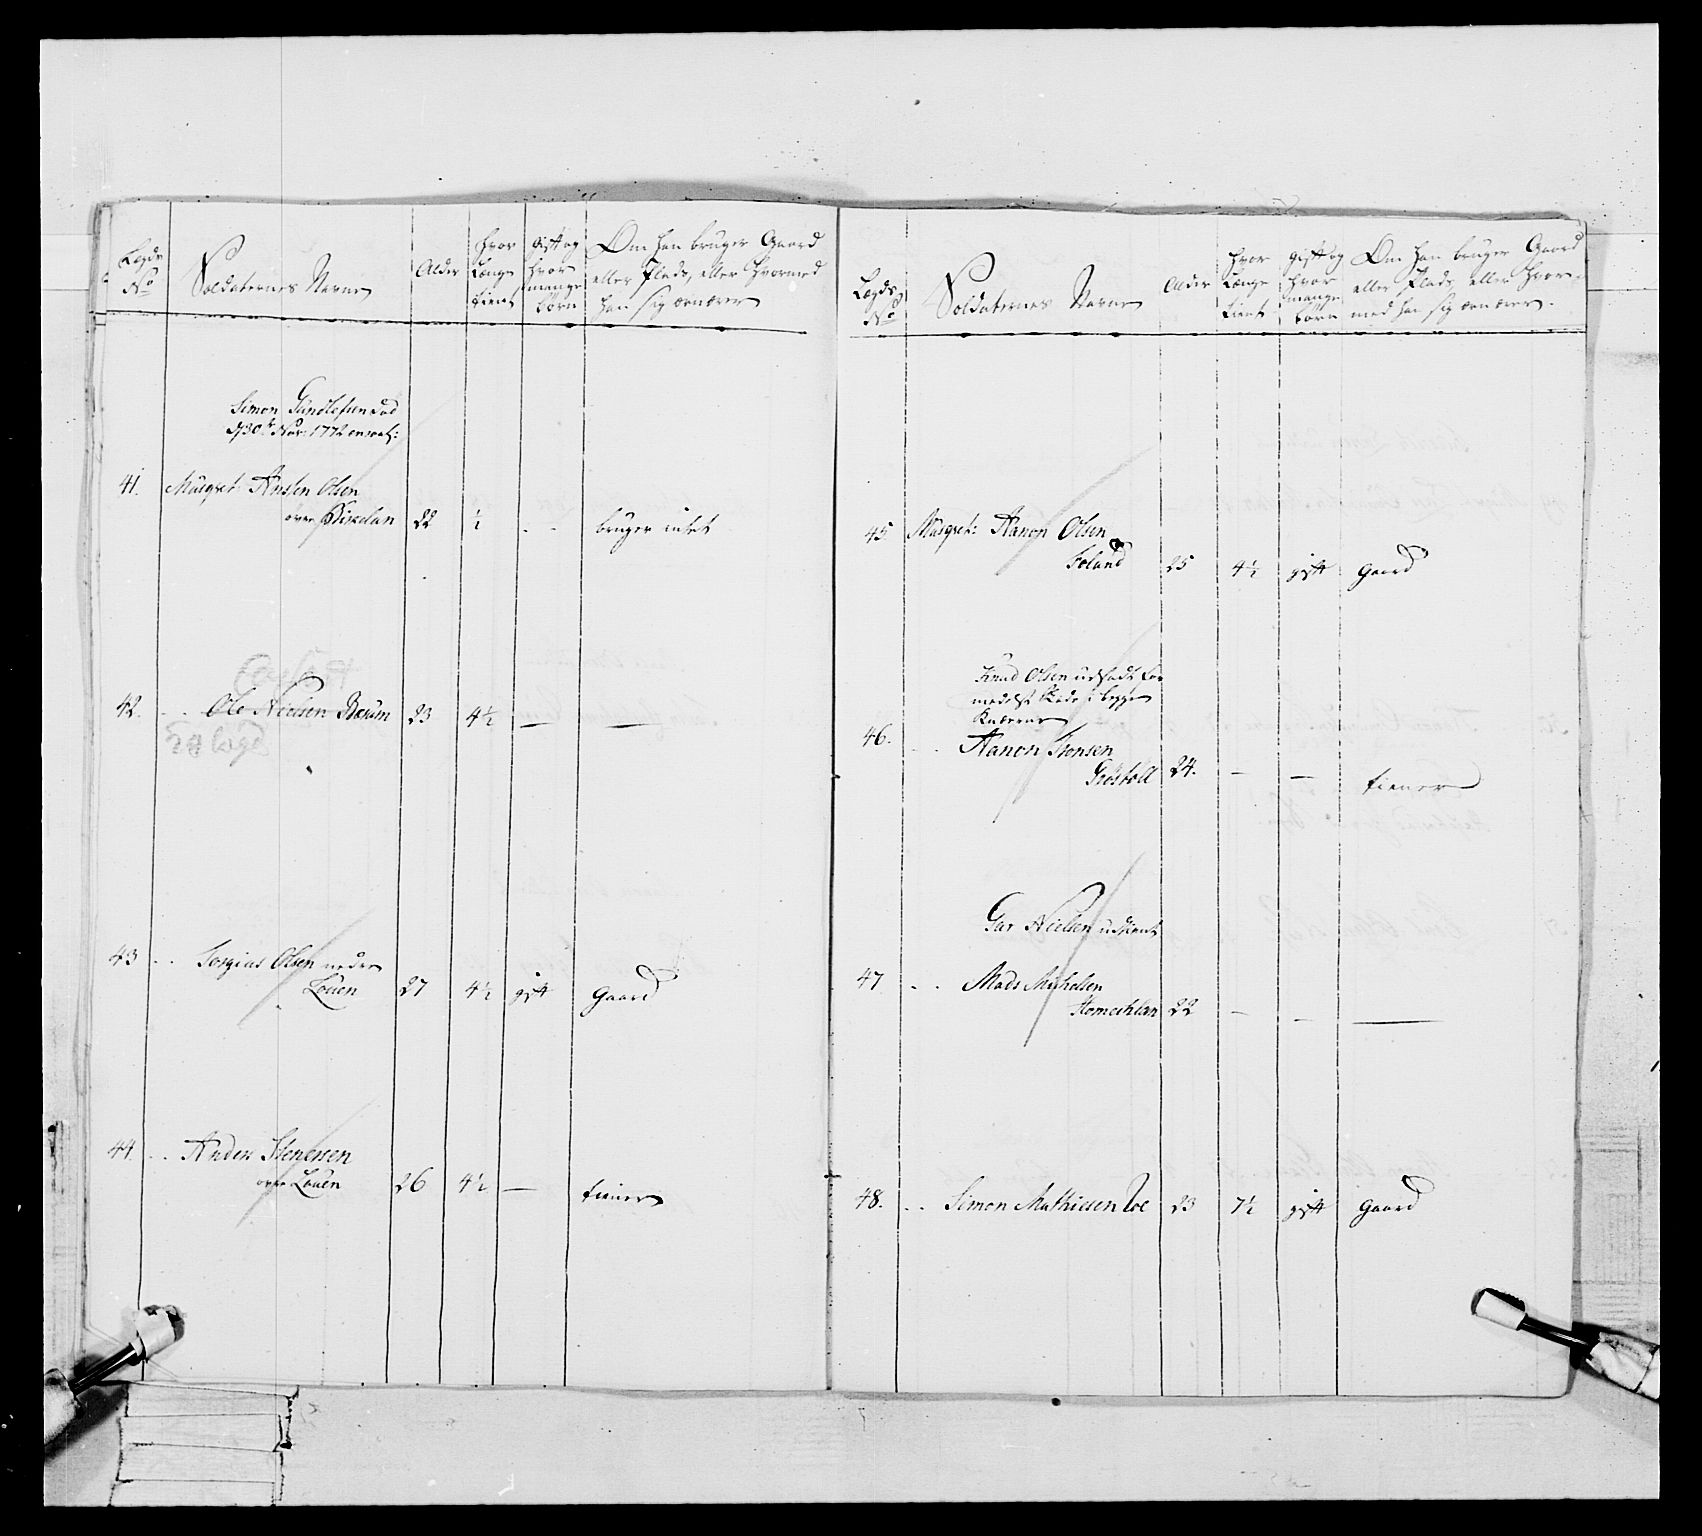 Lægds
No
Soldaternes Navne
Alder
hvor
Længe
tient
gift og
hvor
mange
børn
Om han bruger Gaard
eller Plads, eller hvormed
han sig ernærer
Simon Gundlesen død
d 30te Nov: 1772 ansat:
41. Musqvet: Anssen Olsen
over Birkelan 22 ½ - - bruger intet
42. - - Ole Nielsen Berum 23 4½ — —
43 - - Torgius Olsen neder
Louen 27 4½ gift gaard
44. - - Anders Stenersen
over Louen 26 4½ — tiener
Lægds
No
Soldaternes Navne
Alder
hvor
Længe
tient
gift og
hvor
mange
børn
Om han bruger Gaard
eller Plads, eller hvor-
med han sig ernærer.
45. Musqvet: Aanon Olsen
Foland 25 4½ gift gaard
Knud Olsen udskudt for
medelst skade i begge
Knæerne
46. - - Aanon Stensen
24. — — tiener
Gar Nielsen udtient
47 - - Mads Michelsen
Homeihlan 22 — — —
48. - - Simon Mathiesen Loe 23 7½ gift gaard